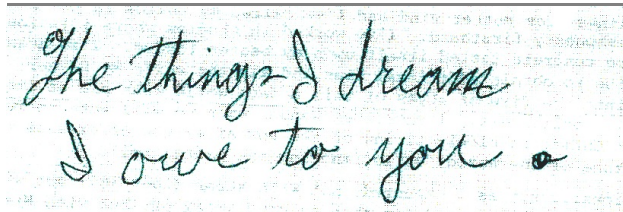 The things I dream
I owe to you.